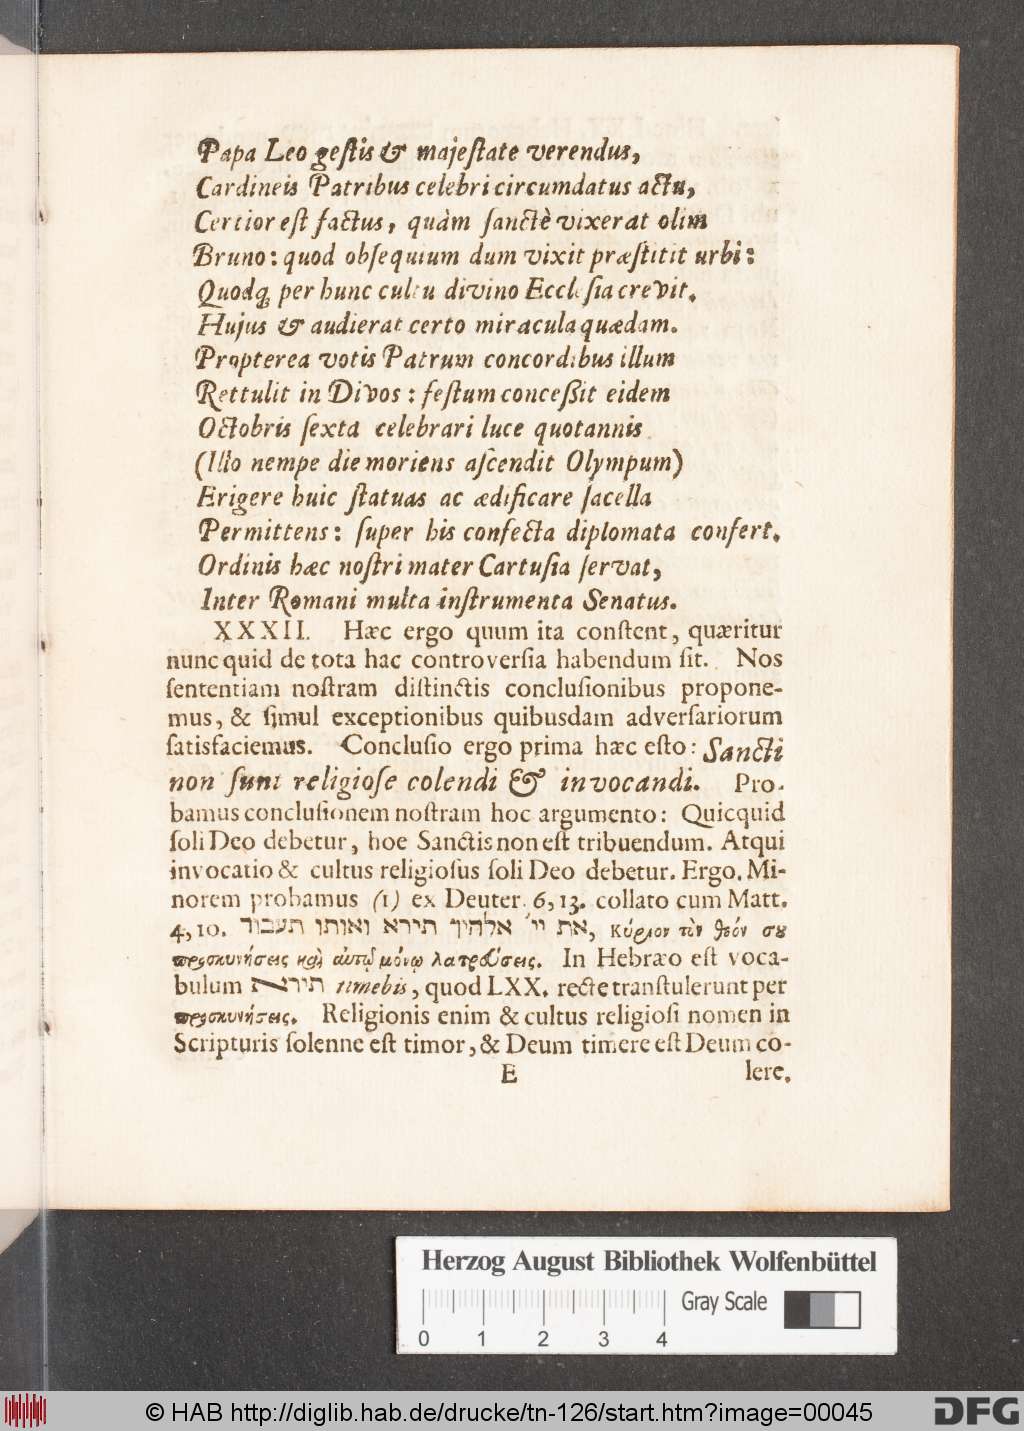 Papa Leo gestis & majestate verendus,
Cardineis Patribus celebri circumdatus actu,
Certior est factus, quàm sanctè vixerat olim
Bruno: quod obsequium dum vixit præstitit urbi:
Quodq; per hunc cultu divino Ecclesia crevit.
Hujus & audierat certo miracula quædam.
Propterea votis Patrum concordibus illum
Rettulit in Divos: festum conceßit eidem
Octobris sexta celebrari luce quotannis
(Illo nempe die moriens ascendit Olympum)
Erigere huic statuas ac ædificare sacella
Permittens: super his confecta diplomata confert.
Ordinis hæc nostri mater Cartusia servat,
Inter Romani multa instrumenta Senatus.
XXXII. Hæc ergo quum ita constent, quæritur
nunc quid de tota hac controversia habendum sit. Nos
sententiam nostram distinctis conclusionibus propone-
mus, & simul exceptionibus quibusdam adversariorum
satisfaciemus. Conclusio ergo prima hæc esto: Sancti
non sunt religiose colendi & invocandi. Pro-
bamus conclusionem nostram hoc argumento: Quicquid
soli Deo debetur, hoe Sanctis non est tribuendum. Atqui
invocatio & cultus religiosus soli Deo debetur. Ergo. Mi-
norem probamus (1) ex Deuter. 6, 13. collato cum Matt.
4, 10. את יי׳ אלהיך תירא ואותו תעבוד, κύριον τὸν θεόν σου
προσκυνήσεις καὶ αὐτῷ μόνῳ λατρεύσεις. In Hebræo est voca-
bulum תירא timebis, quod LXX. recte transtulerunt per
προσκυνήσεις. Religionis enim & cultus religiosi nomen in
Scripturis solenne est timor, & Deum timere est Deum co-
E lere.
Herzog August Bibliothek Wolfenbüttel
Gray Scale
0 1 2 3 4
© HAB http://diglib.hab.de/drucke/tn-126/start.htm?image=00045
DFG